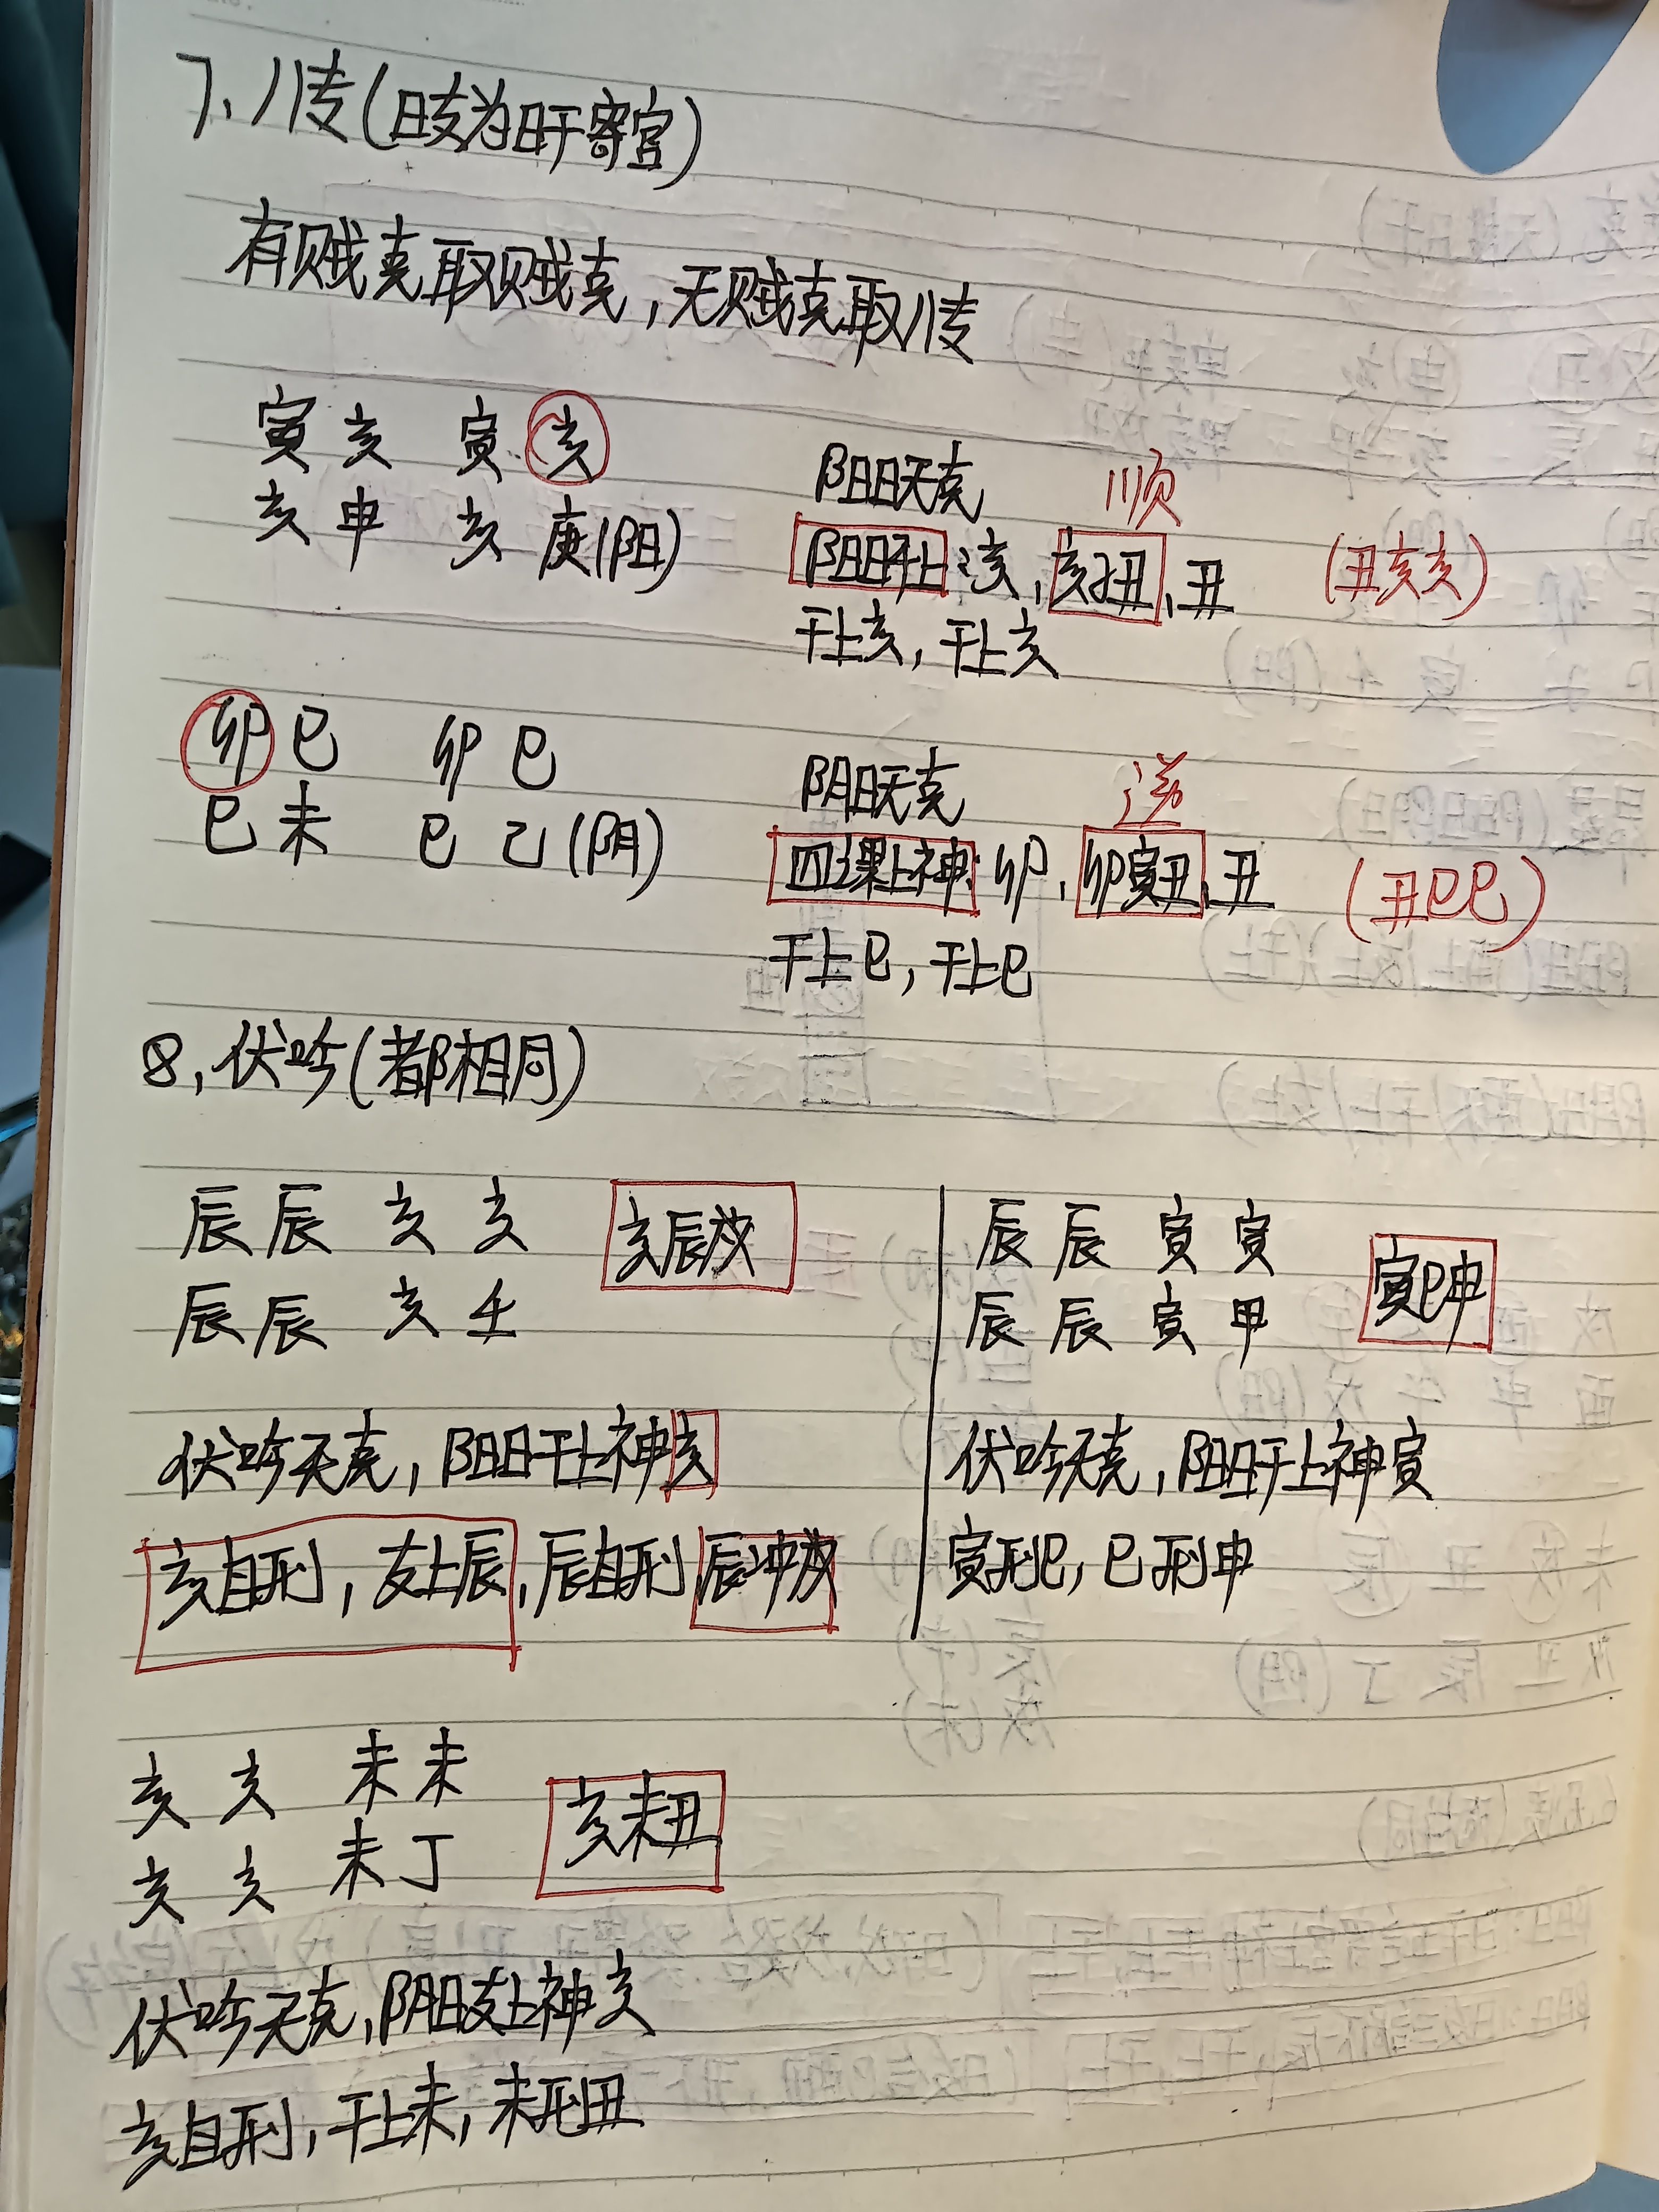 7、八传(日支为日干寄宫)
有贼克取贼克，无贼克取八传
寅 亥 寅 亥
亥 申 亥 庚(阳)
阳日无克 顺
阳日干上:亥,亥子丑,丑 (丑亥亥)
干上亥，干上亥
卯 巳 卯 巳
巳 未 巳 己(阴)
阴日无克 逆
四课上神:卯,卯寅丑,丑 (丑巳巳)
干上巳，干上巳
8,伏吟(都相同)
辰 辰 亥 亥 亥辰戌
辰 辰 亥 壬
伏吟无克，阳日干上神亥
亥自刑，支上辰，辰自刑 辰冲戌
辰 辰 寅 寅 寅巳申
辰 辰 寅 甲
伏吟无克，阳日干上神寅
寅刑巳，巳刑申
亥 亥 未 未 亥未丑
亥 亥 未 丁
伏吟无克，阴日支上神亥
亥自刑，干上未，未刑丑